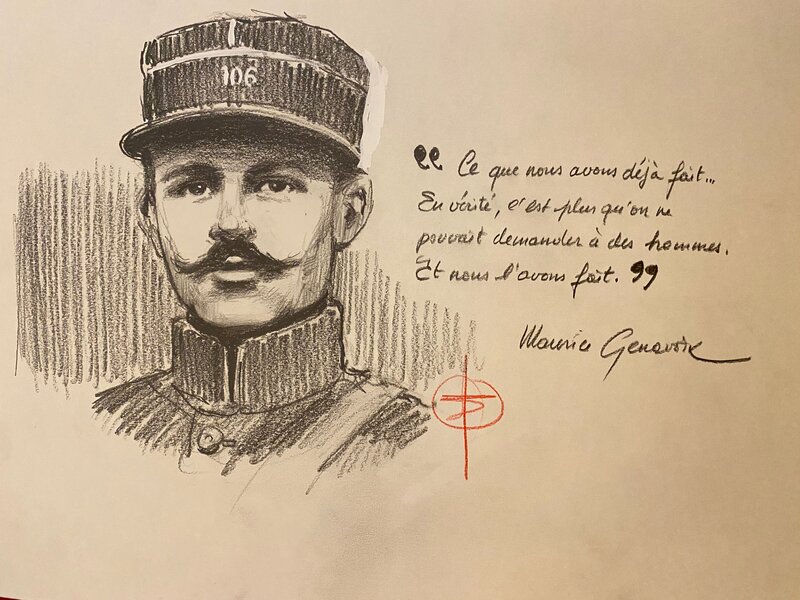 106
"Ce que nous avons déjà fait...
En vérité, c'est plus qu'on ne
pouvait demander à des hommes.
Et nous l'avons fait."
Maurice Genevoix